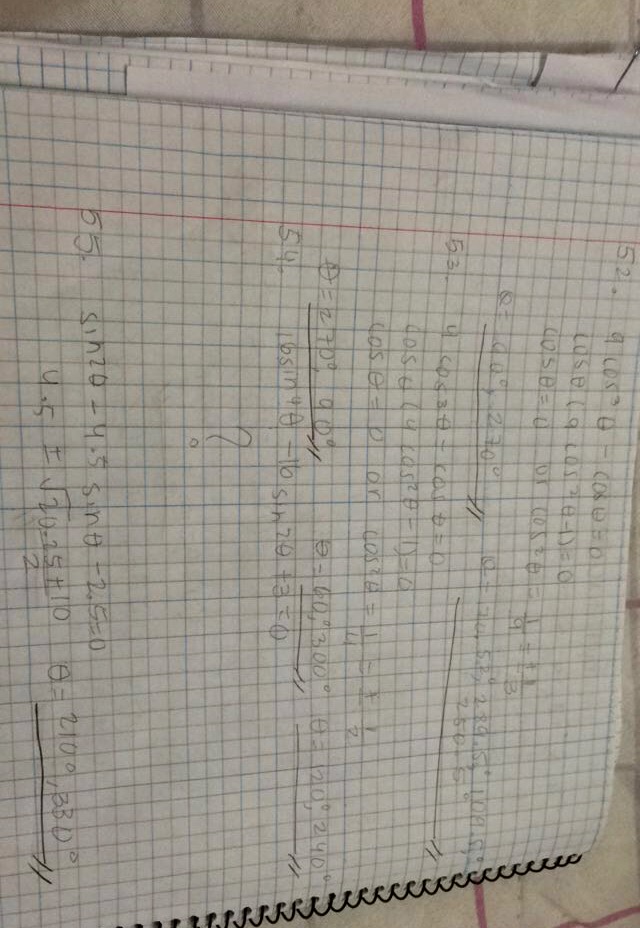 52. 9 cos³ θ - cos θ = 0
cos θ (9 cos² θ - 1) = 0
cos θ = 0 or cos² θ = 1/9 = ± 1/3
θ = 90°, 270° θ = 70.53°, 289.5°, 109.5°,
250.5°
53. 4 cos3 θ - cos θ = 0
cos θ (4 cos² θ - 1) = 0
cos θ = 0 or cos² θ = 1/4 = ± 1/2
θ = 270°, 90° θ = 60°, 300° θ = 120°, 240°
54. 16 sin⁴ θ - 16 sin 2θ + 3 = 0
?
55. sin2θ - 4.5 sin θ - 2.5 = 0
4.5 ± √20.25 + 10 / 2 θ = 210°, 330°